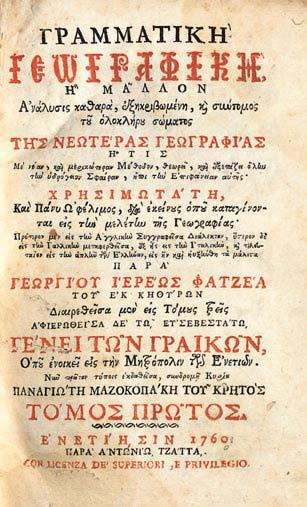 ΓΡΑΜΜΑΤΙΚΗ
ΓΕΩΓΡΑΦΙΚΗ,
Ἢ ΜΑ͂ΛΛΟΝ
Ἀνάλυσις καθαρὰ, ἐξηκριβωμένη, καὶ σύντομος
τοῦ ὁλοκλήρου σώματος
ΤΗΣ ΝΕΩΤΕΡΑΣ ΓΕΩΓΡΑΦΙΑΣ
ἭΤΙΣ
Μὲ νέαν, καὶ μερικώτεραν Μέθοδον, θεωρεῖ, καὶ ἐξετάζει ὅλην
τὴν ὑδρόγειον Σφαῖραν, ἤτοι τὴν Ἐπιφάνειαν αὐτῆς·
ΧΡΗΣΙΜΩΤΑΤΗ,
Καὶ Πάνυ Ὠφέλιμος, δι' ἐκείνους ὁποῦ καταγίνον-
ται εἰς τὴν μελέτην τῆς Γεωγραφίας·
Πρότερον μὲν εἰς τὴν Ἀγγλικὴν Συγγραφεῖσα Διάλεκτον, ὕστερον δὲ
εἰς τὴν Γαλλικὴν μεταφερθεῖσα, ἐξ ἧς εἰς τὴν Ἰταλικήν, καὶ τελευ-
ταῖον εἰς τὴν ἁπλῆν τῶν Ἑλλήνων, εἰς ἣν καὶ ηὐξήνθη τὰ μάλιστα
ΠΑΡΑ
ΓΕΩΡΓΙΟΥ ἹΕΡΕΩΣ ΦΑΤΖΕΑ
ΤΟΥ ἘΚ ΚΗΘΥΡΩΝ
Διαιρεθεῖσα μὲν εἰς Τόμους τρεῖς
ἈΦΙΕΡΩΘΕΙΣΑ ΔΕ ΤΩ, ΕΥΣΕΒΕΣΤΑΤΩ,
ΓΕΝΕΙ ΤΩΝ ΓΡΑΙΚΩΝ,
Ὁποῦ ἐνοικεῖ εἰς τὴν Μητρόπολιν τῶν Ἐνετιῶν.
Νῦν πρῶτον τύποις ἐκδοθεῖσα, συνδρομῇ Κυρίου
ΠΑΝΑΓΙΩΤΗ ΜΑΖΟΚΟΠΑΚΗ ΤΟΥ ΚΡΗΤΟΣ
ΤΟΜΟΣ ΠΡΩΤΟΣ.
ἘΝΕΤΙΗΣΙΝ 1760.
ΠΑΡΑ ἈΝΤΩΝΙΩ, ΤΖΑΤΤΑ.
CON LICENZA DE' SUPERIORI, E PRIVILEGIO.